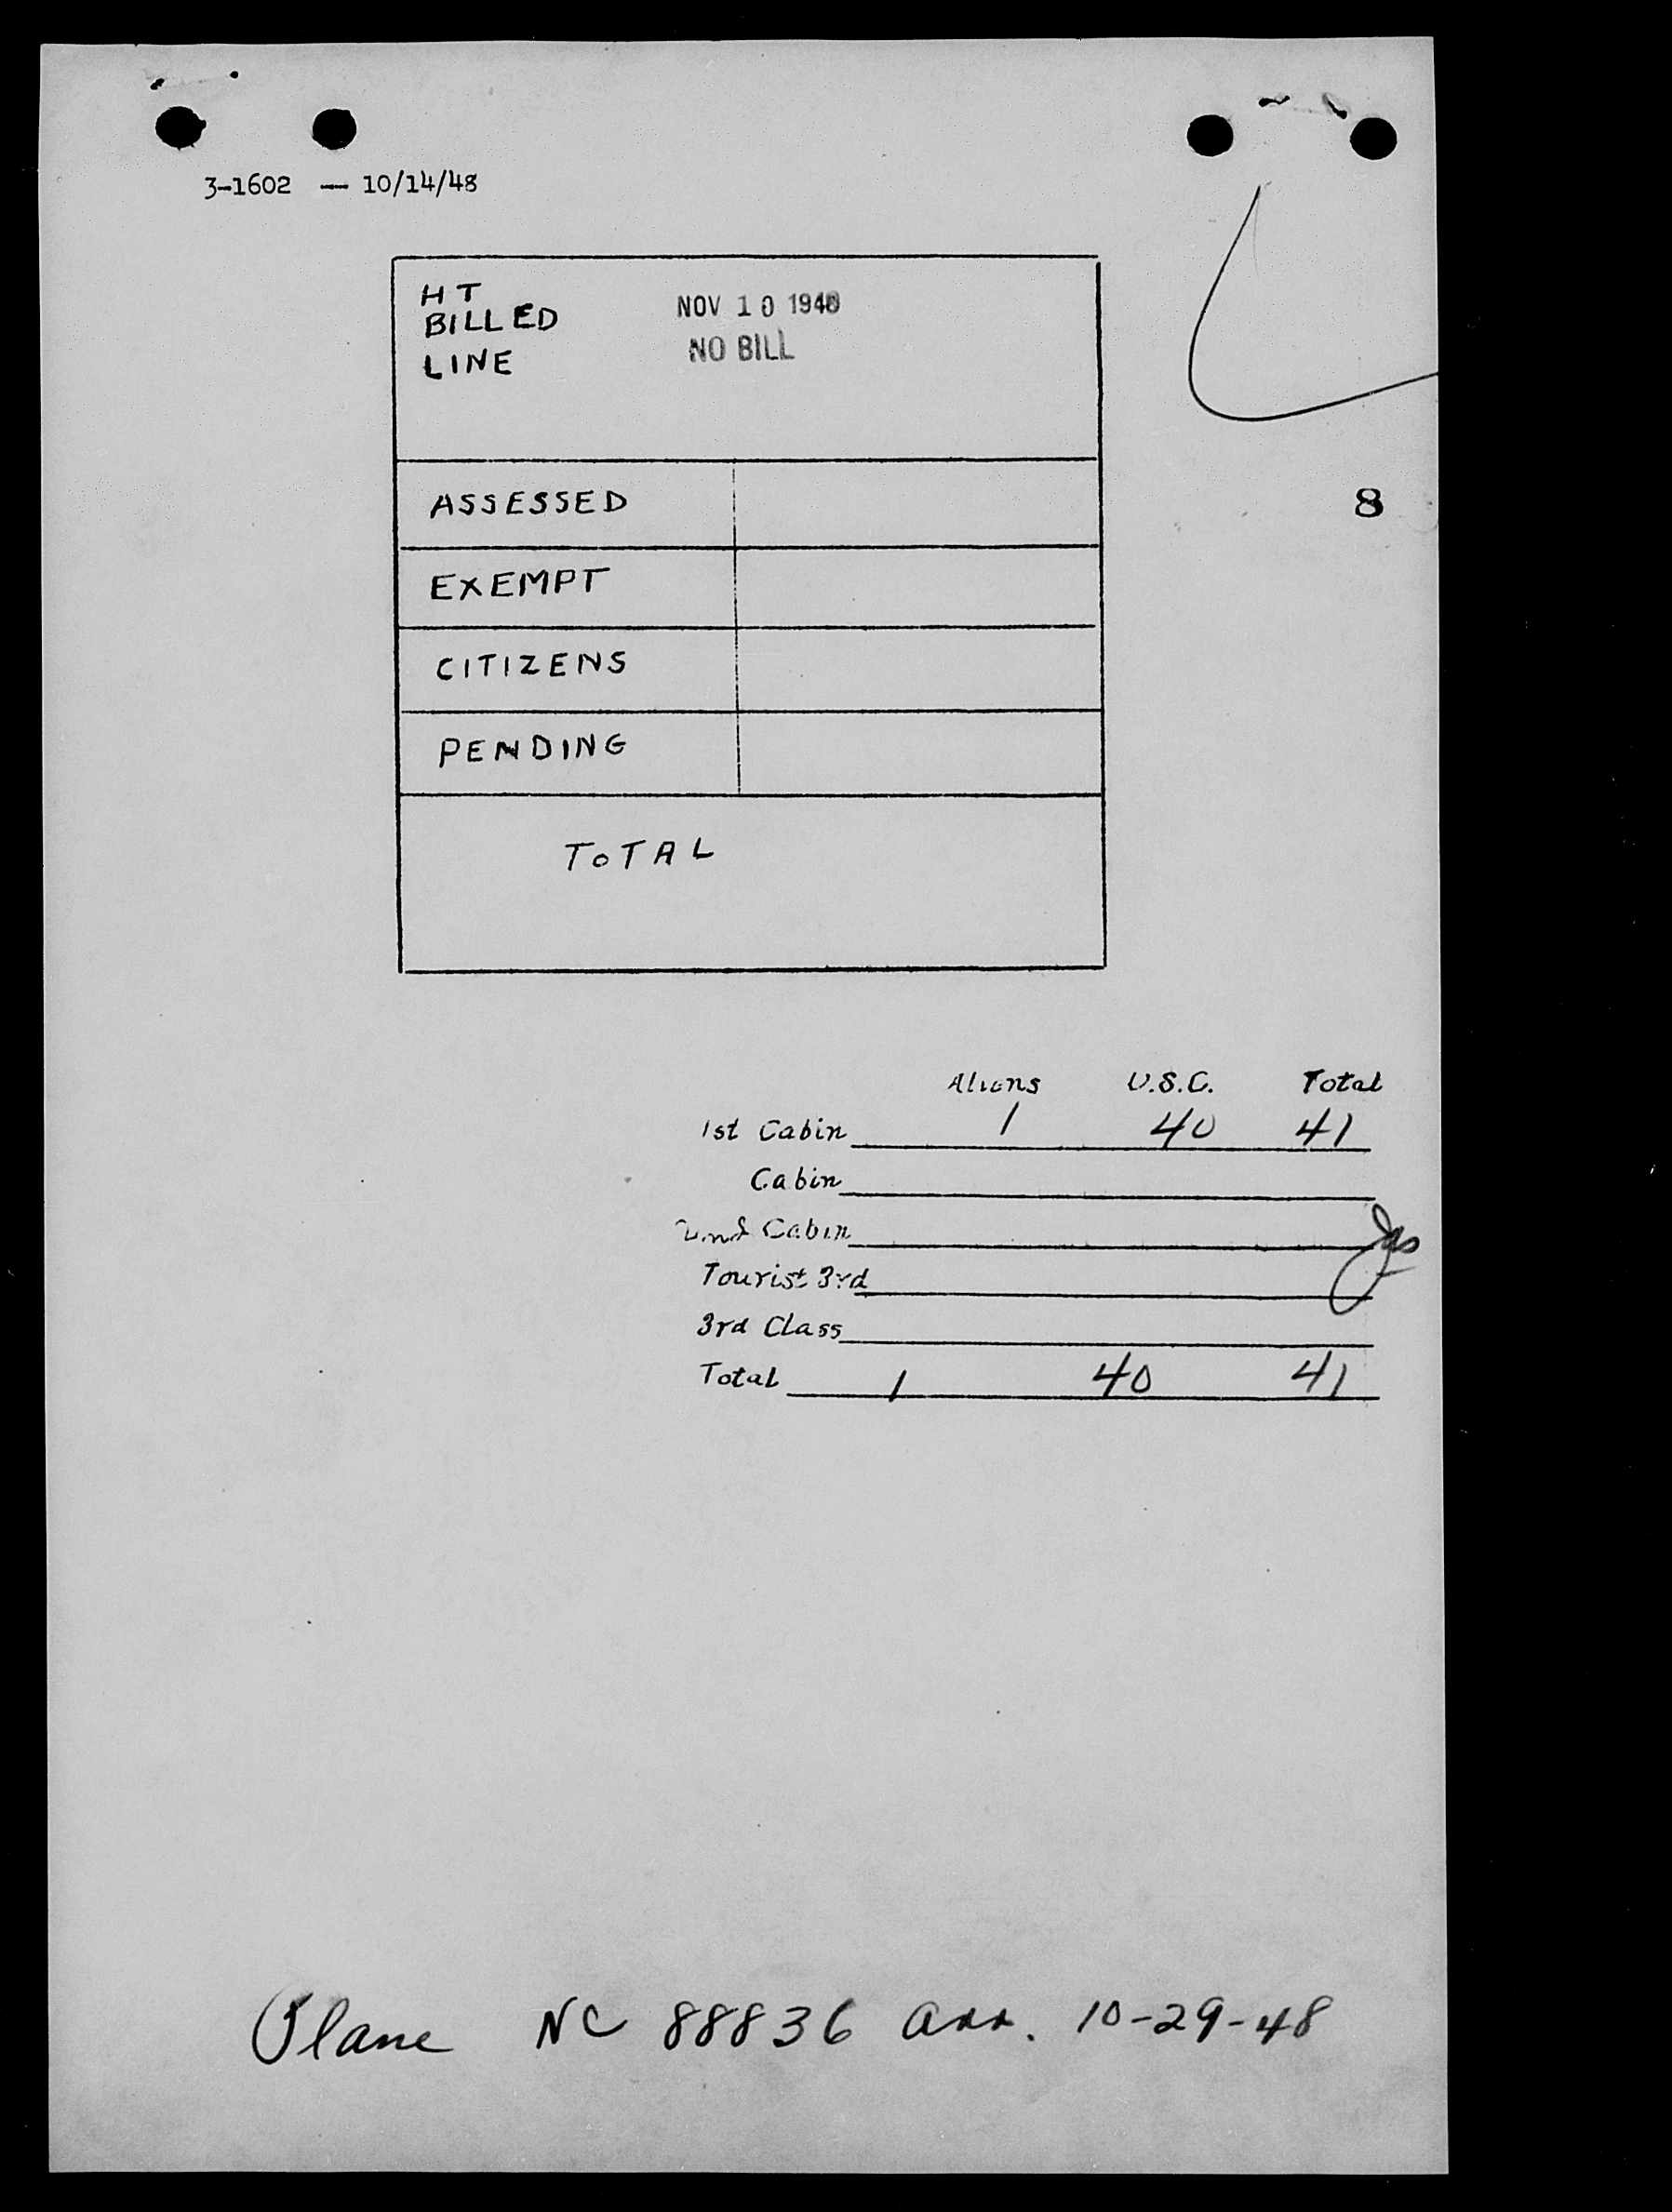 3-1602 — 10/14/48
HT
BILLED
LINE
NOV 10 1948
NO BILL
8
ASSESSED
EXEMPT
CITIZENS
PENDING
TOTAL
Aliens U.S.C. Total
1st Cabin 1 40 41
Cabin
2nd Cabin
Tourist 3rd
3rd Class
Total 1 40 41
Plane NC 88836 arr. 10-29-48